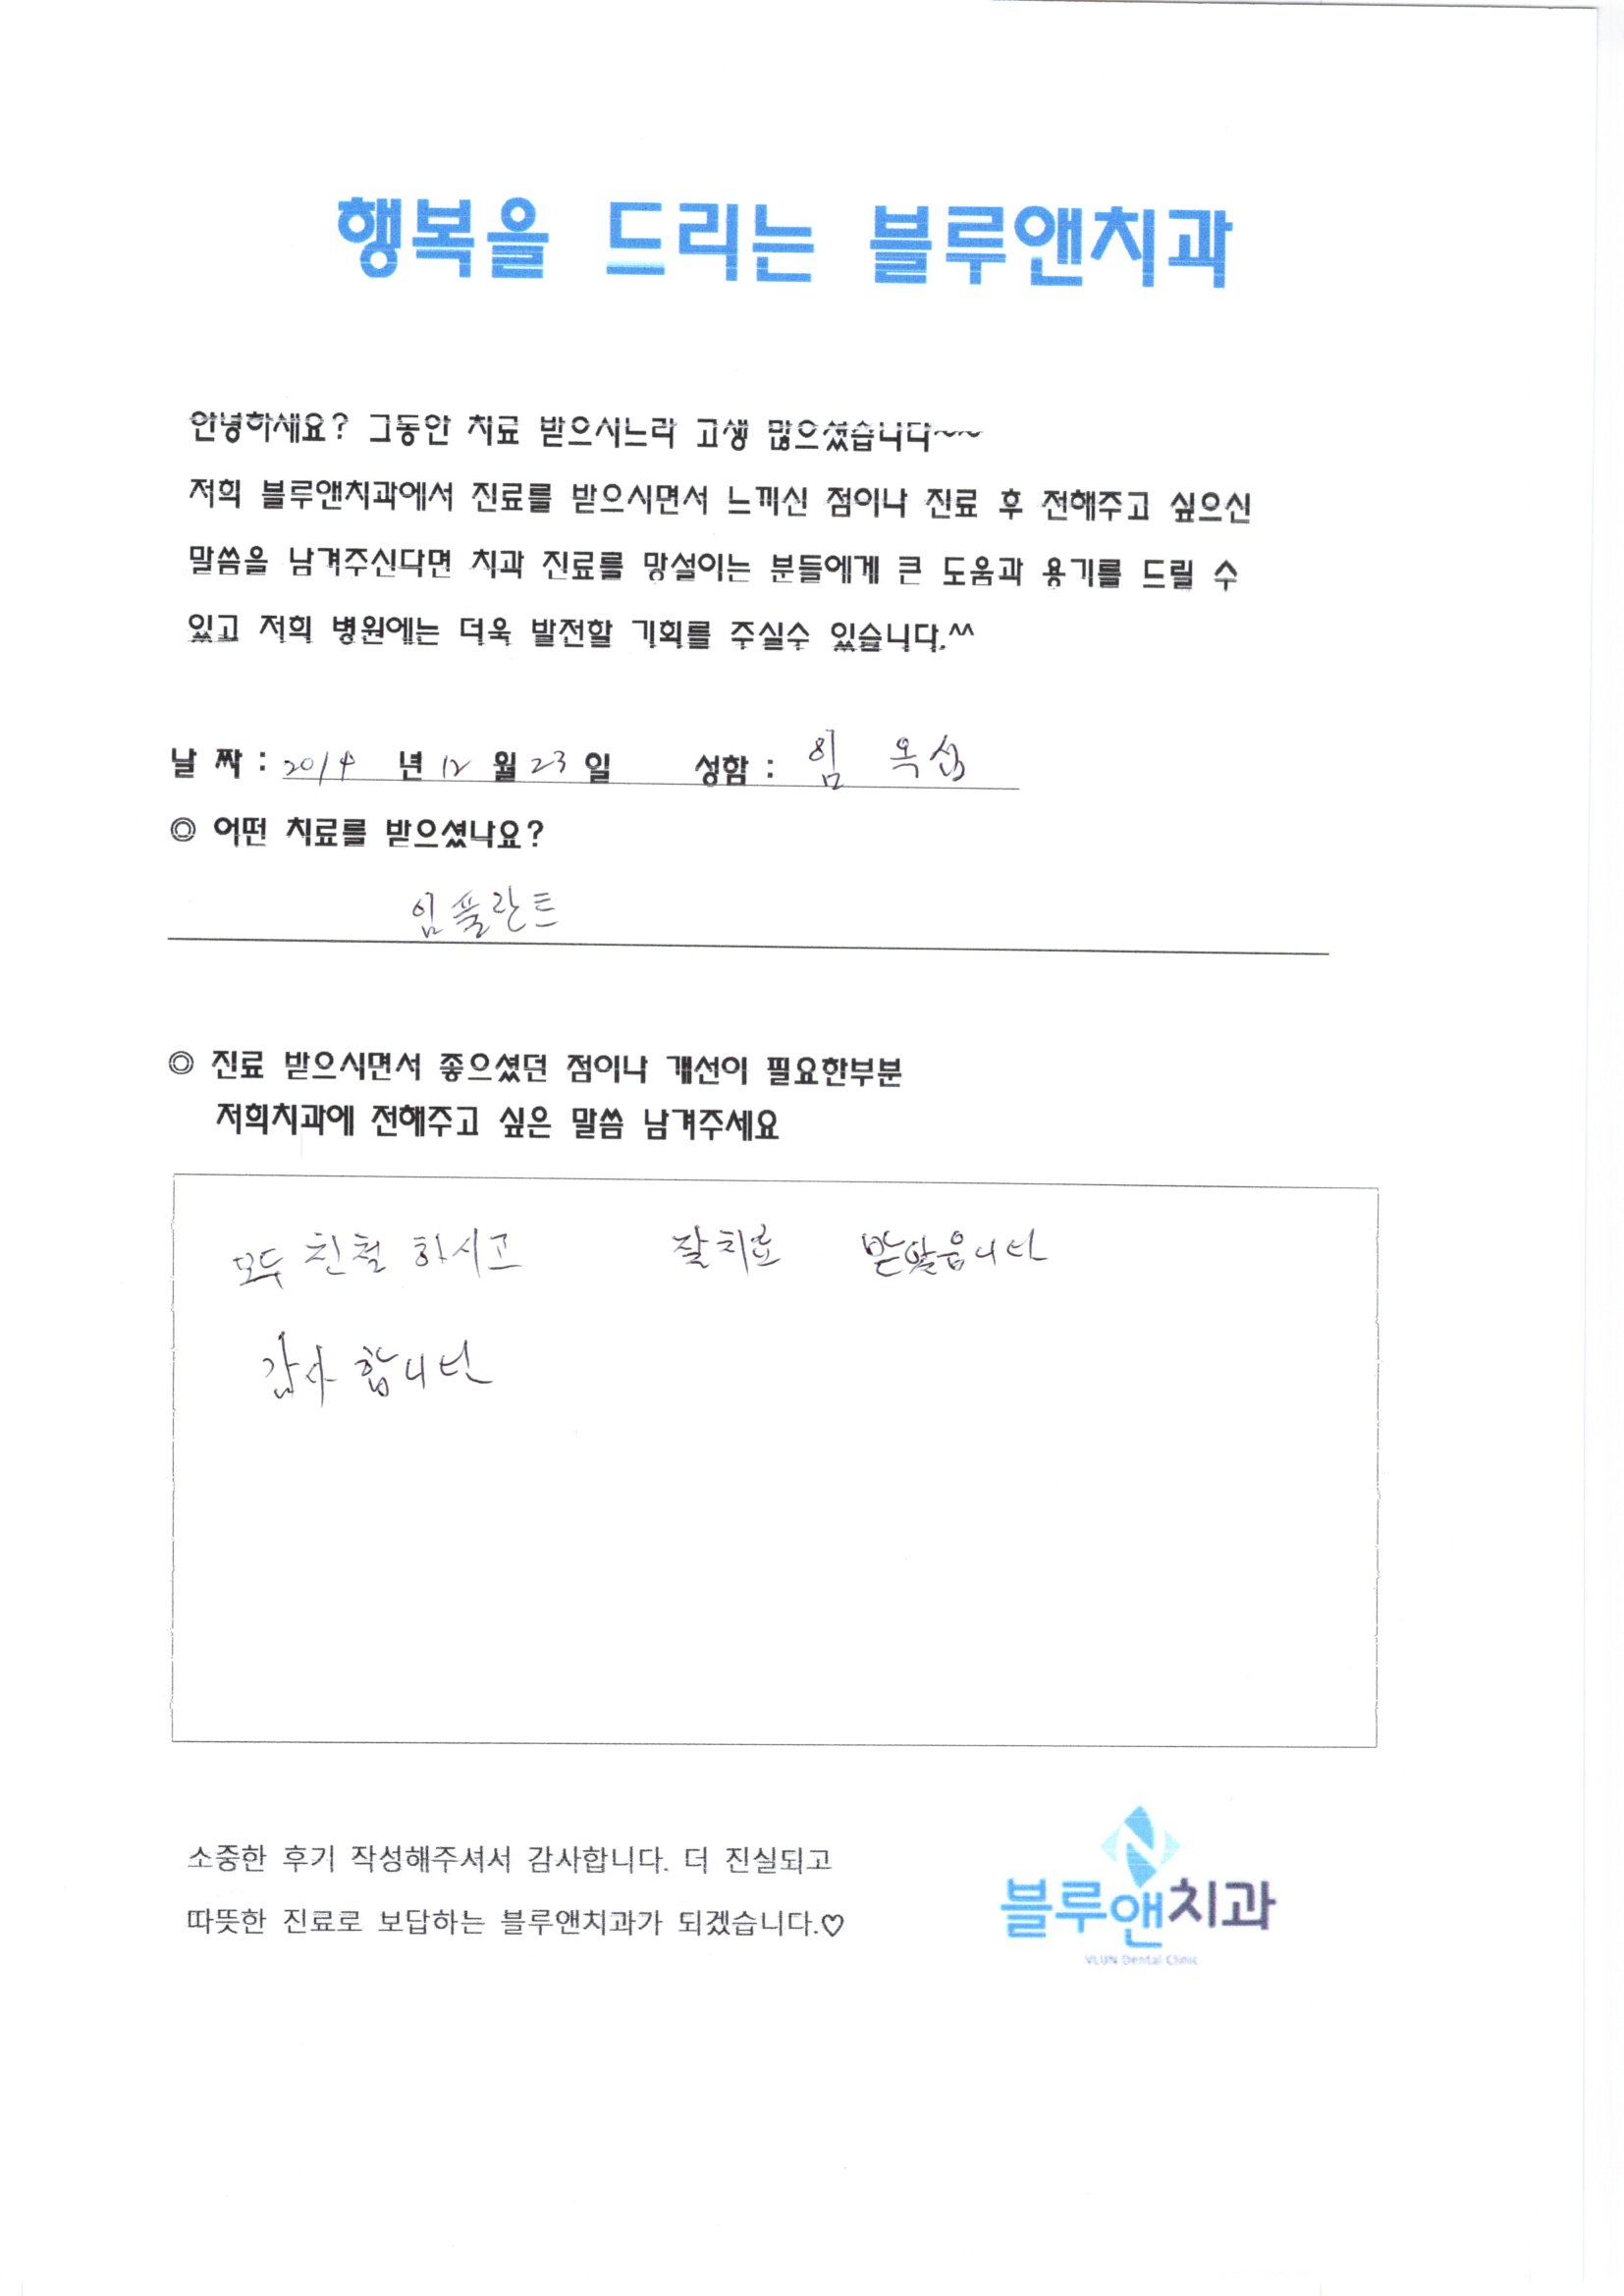 행복을 드리는 블루앤치과
안녕하세요? 그동안 치료 받으시느라 고생 많으셨습니다~~
저희 블루앤치과에서 진료를 받으시면서 느끼신 점이나 진료 후 전해주고 싶으신
말씀을 남겨주신다면 치과 진료를 망설이는 분들에게 큰 도움과 용기를 드릴 수
있고 저희 병원에는 더욱 발전할 기회를 주실수 있습니다.^^
날 짜 : 2014 년 12 월 23 일 성함 : 임 옥
◎ 어떤 치료를 받으셨나요?
임플란트
◎ 진료 받으시면서 좋으셨던 점이나 개선이 필요한부분
저희치과에 전해주고 싶은 말씀 남겨주세요
모두 친철 하시고 잘치료
감사 합니다
소중한 후기 작성해주셔서 감사합니다. 더 진실되고
따뜻한 진료로 보답하는 블루앤치과가 되겠습니다.♡
블루앤치과
VLUN Dental Clinic